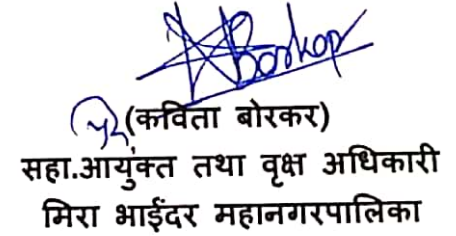 (कविता बोरकर)
सहा.आयुक्त तथा वृक्ष अधिकारी
मिरा भाईंदर महानगरपालिका